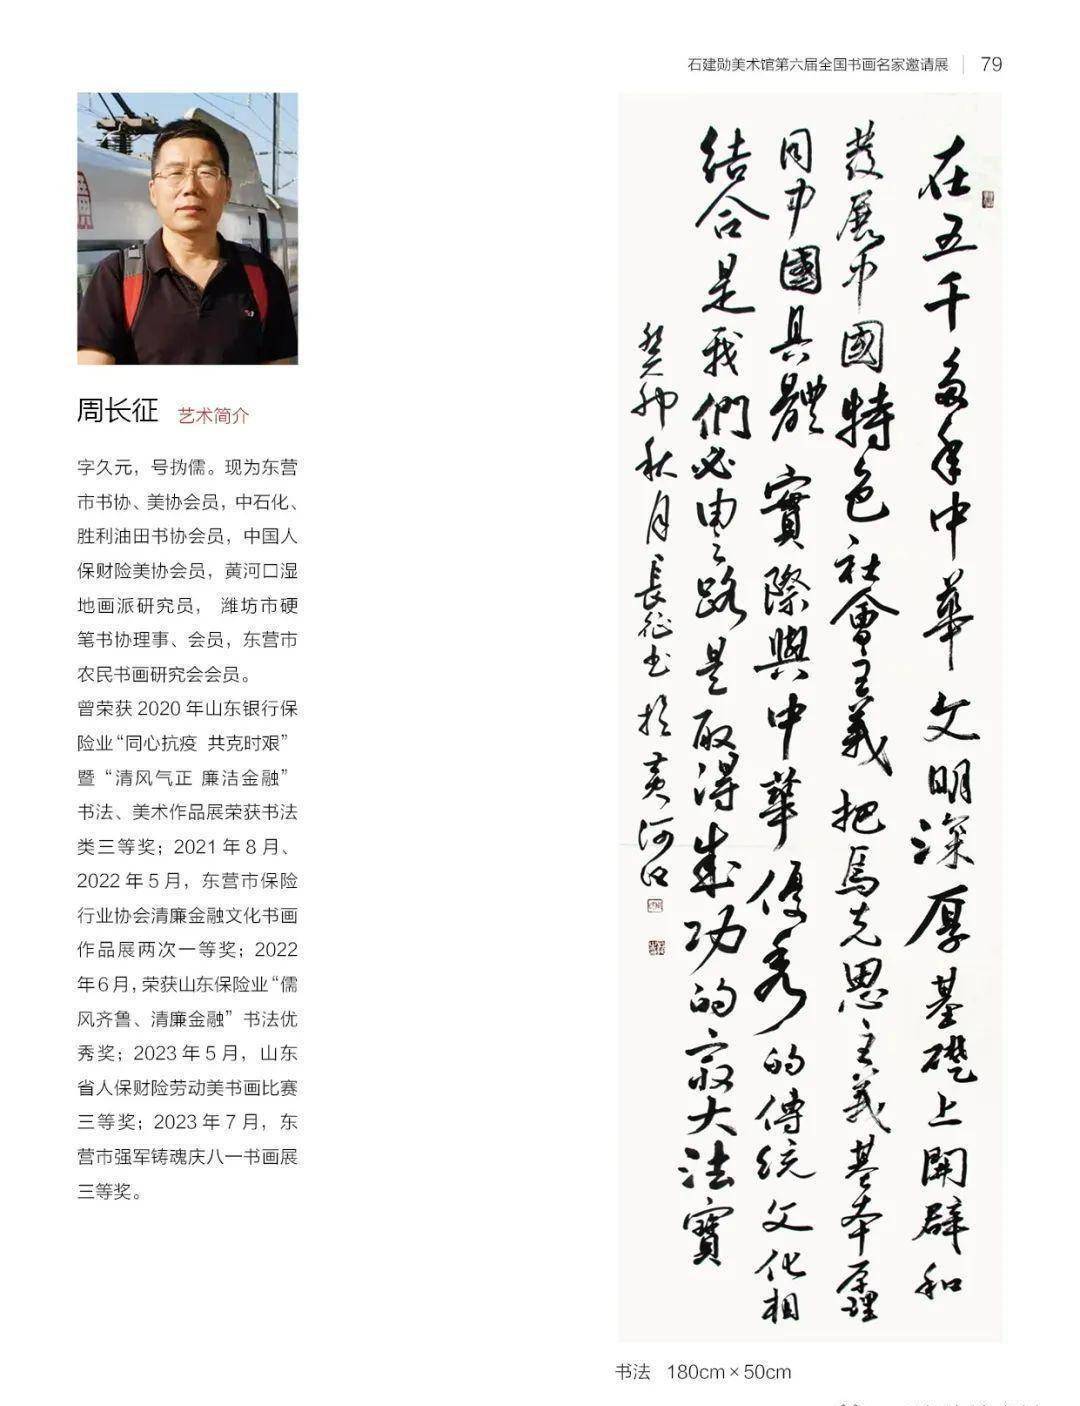 石建勋美术馆第六届全国书画名家邀请展 | 79
周长征 艺术简介
字久元，号㧑儒。现为东营
市书协、美协会员，中石化、
胜利油田书协会员，中国人
保财险美协会员，黄河口湿
地画派研究员， 潍坊市硬
笔书协理事、会员，东营市
农民书画研究会会员。
曾荣获 2020 年山东银行保
险业“同心抗疫 共克时艰”
暨“清风气正 廉洁金融”
书法、美术作品展荣获书法
类三等奖；2021 年 8 月、
2022 年 5 月，东营市保险
行业协会清廉金融文化书画
作品展两次一等奖；2022
年 6 月，荣获山东保险业“儒
风齐鲁、清廉金融”书法优
秀奖；2023 年 5 月，山东
省人保财险劳动美书画比赛
三等奖；2023 年 7 月，东
营市强军铸魂庆八一书画展
三等奖。
在五千多年中華文明深厚基礎上開辟和
發展中國特色社會主義把馬克思主義基本原理
同中國具體實際與中華優秀的傳統文化相
結合是我們必由之路是取得成功的最大法寶
癸卯秋月長征书於黄河口
书法 180cm×50cm